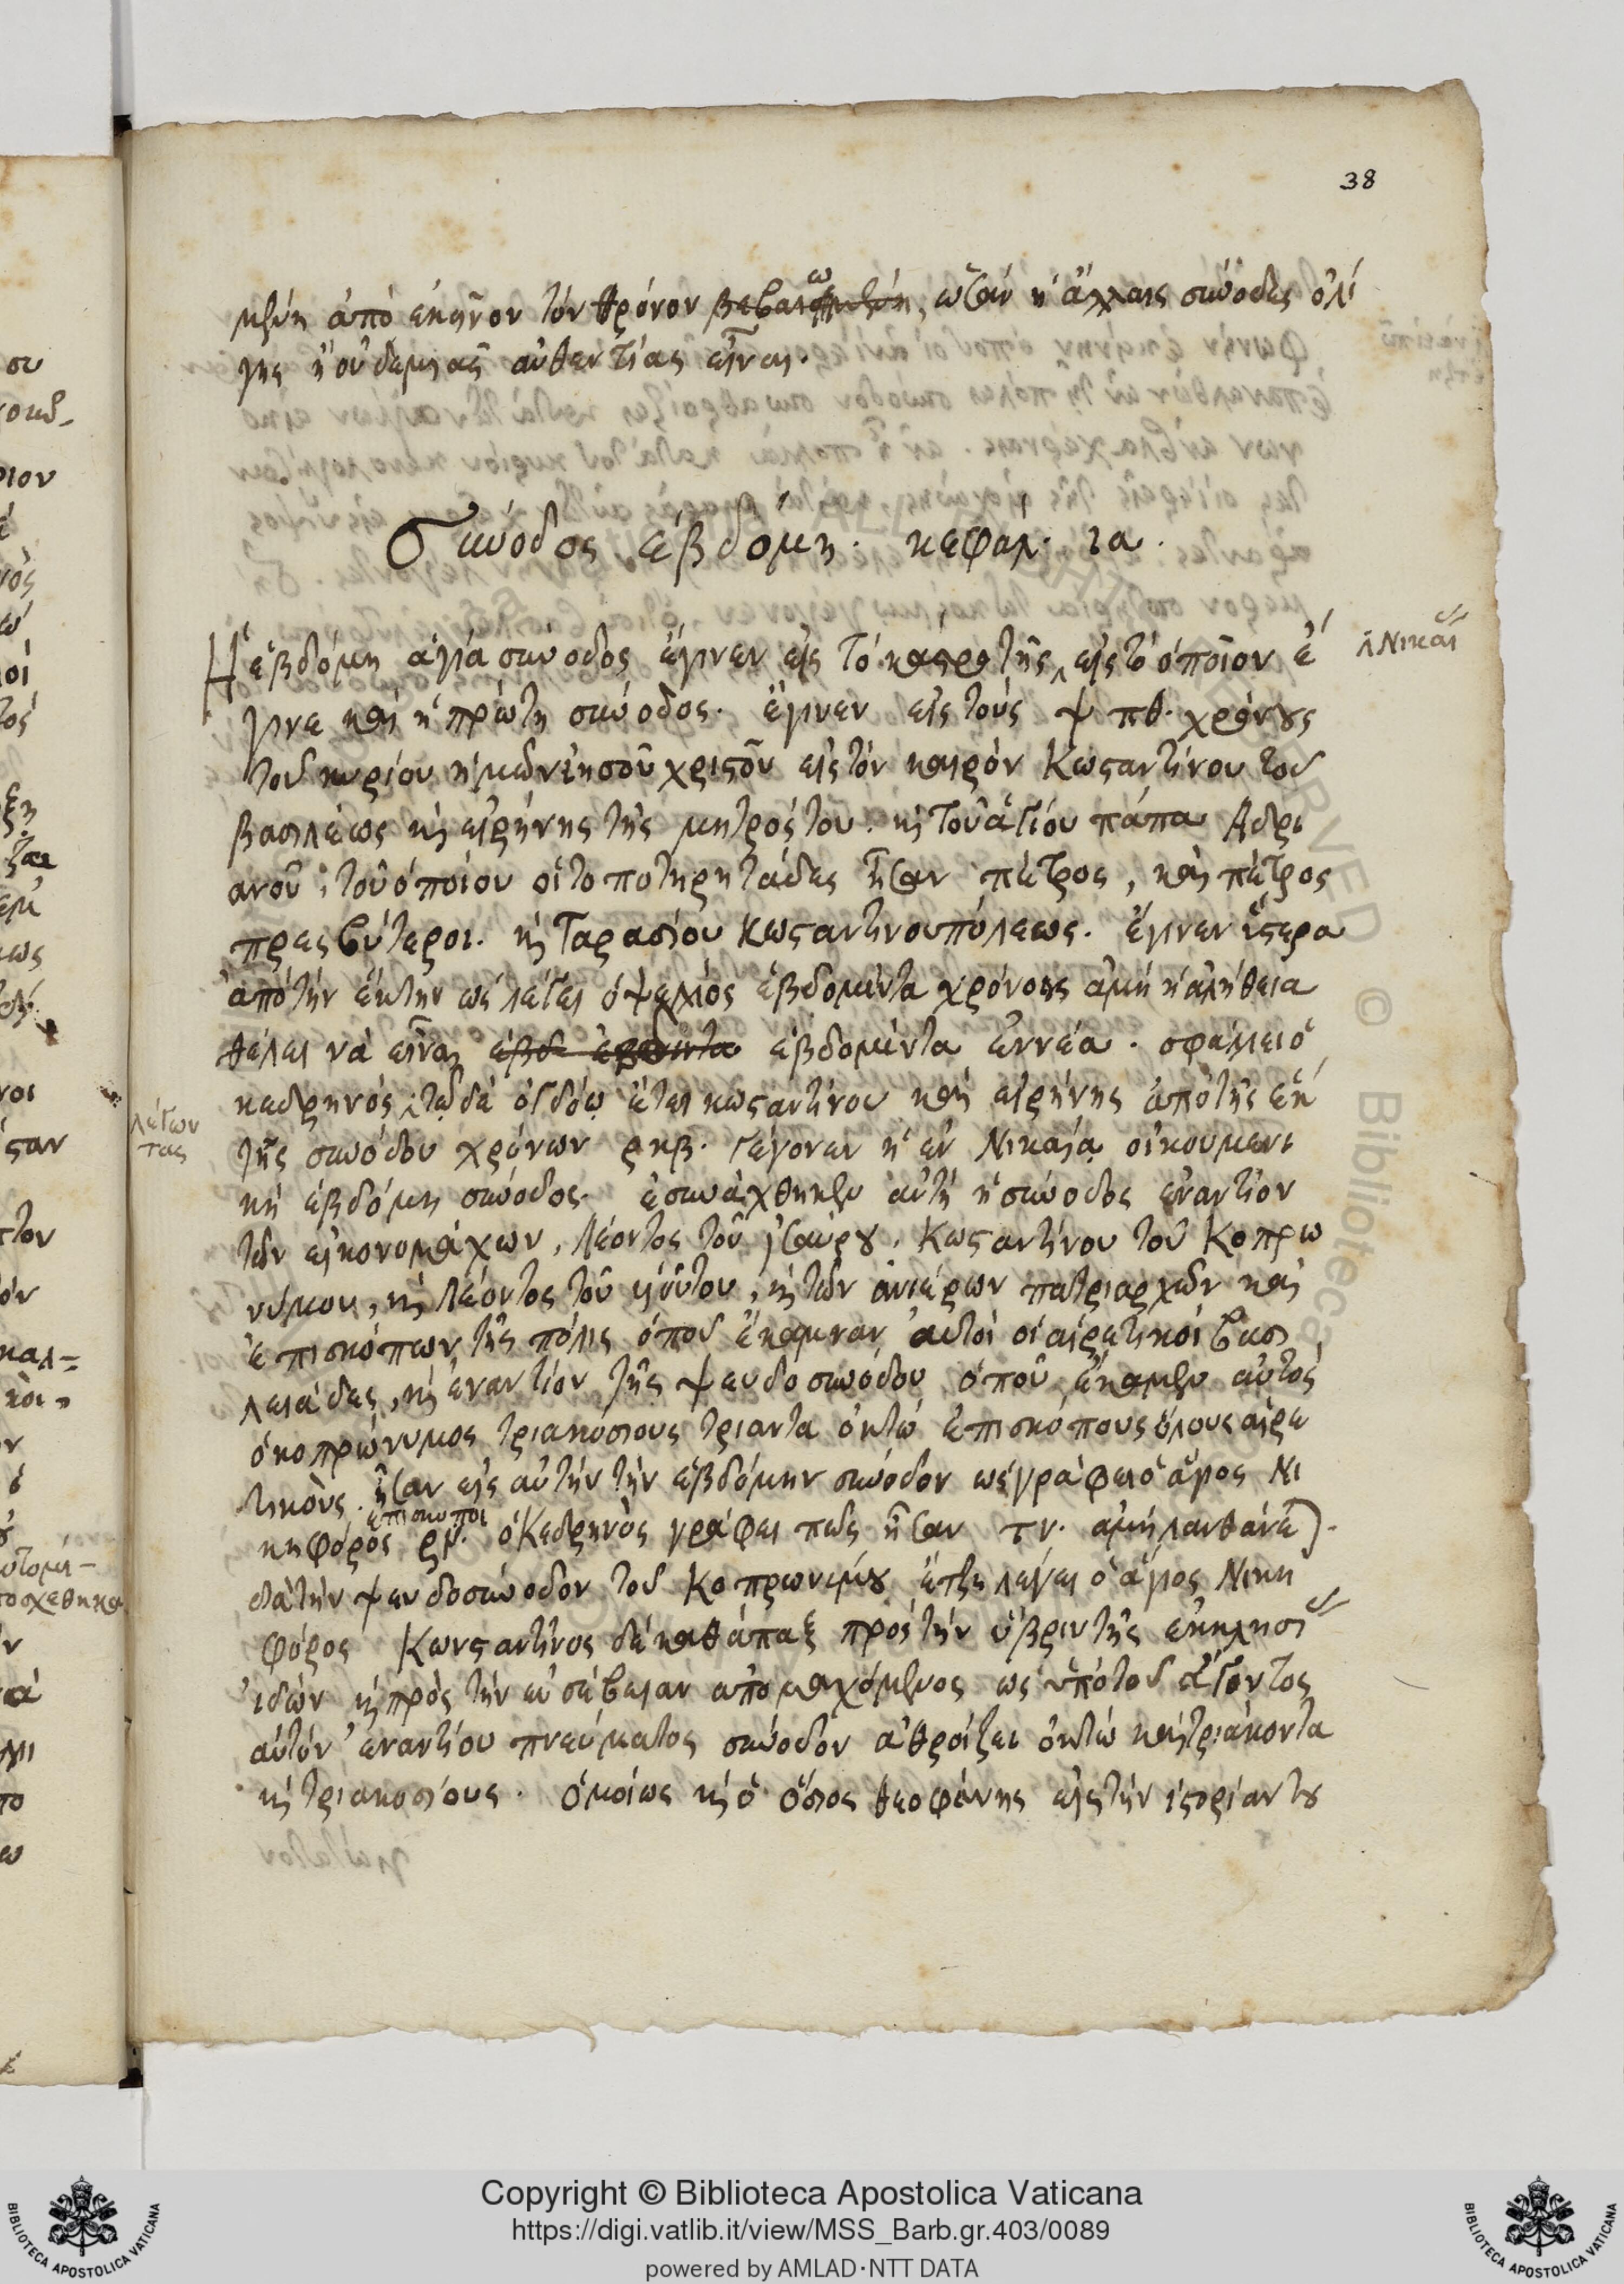 38
μένη ἀπὸ ἐκεῖνον τὸν θρόνον βεβαιω, ὡσὰν ἡ ἄλλαις σύνοδες ὀλί
γης ἢ οὐδεμιᾶς αὐθεντίας εἶναι.
Σύνοδος ἑβδόμη. κεφάλ. ια.
Ἡ ἑβδόμη ἁγία σύνοδος ἔγινεν εἰς τὸ τῆς εἰς τὸ ὁποῖον ἐ
Νικαί
γινε καὶ ἡ πρώτη σύνοδος. ἔγινεν εἰς τοὺς ψπθ. χρόνους
τοῦ κυρίου ἡμῶν ἰησοῦ χριστοῦ εἰς τὸν καιρὸν Κωσταντίνου τοῦ
βασιλέως κὶ εἰρήνης τῆς μητρός του. κὶ τοῦ ἁγίου πάπα Ἀδρι
ανοῦ, τοῦ ὁποίου οἱ τοποτηρητάδες ἦσαν πέτρος, καὶ πέτρος
πρεσβύτεροι. κὶ Ταρασίου Κωσταντινουπόλεως. ἔγινεν ὕστερα
ἀπὸ τὴν ἕκτην ὡς λέγει ὁ ψελλὸς ἑβδομήντα χρόνους ἀμὴ ἡ ἀλήθεια
θέλει νὰ εἶναι ἑβδομήντα ἐννέα. σφάλλει ὁ
κεδρηνός, τῷ δὲ ὀγδόῳ ἔτει κωσταντίνου καὶ εἰρήνης ἀπὸ τῆς ἕκ
λέγων
τας
της συνόδου χρόνων ρκβ. γέγονεν ἡ ἐν Νικαίᾳ οἰκουμενι
κὴ ἑβδόμη σύνοδος. ἐσυνάχθηκεν αὐτὴ ἡ σύνοδος ἐναντίον
τῶν εἰκονομάχων, λέοντος τοῦ ἰσαύρου, Κωσταντίνου τοῦ Κοπρω
νύμου, κὶ λέοντος τοῦ υἱοῦ του, κὶ τῶν ἀνιέρων πατριαρχῶν καὶ
ἐπισκόπων τῆς πόλις ὁποῦ ἔκαμναν αὐτοὶ οἱ αἱρετικοὶ βασι
λειάδες, κὶ ἐναντίον τῆς ψευδοσυνόδου ὁποῦ ἔκαμεν αὐτὸς
ὁ κοπρώνυμος τριακόσιους τριαντα ὀκτὼ ἐπισκόπους ὅλους αἱρε
τικοὺς. ἦσαν εἰς αὐτὴν τὴν ἑβδόμην σύνοδον ὡς γράφει ὁ ἅγιος Νι
κηφόρος ἐπίσκοποι ρν. ὁ Κεδρηνὸς γράφει πῶς ἦσαν τν. ἀμὴ λανθάνεται.
διὰ τὴν ψευδοσύνοδον τοῦ Κοπρωνύμου ἔτζι λέγει ὁ ἅγιος Νικη
φόρος Κωνσταντῖνος δὲ καθάπαξ πρὸς τὴν ὕβριν τῆς ἐκκλησί
ιδὼν κὶ πρὸς τὴν εὐσέβειαν ἀπομαχόμενος ὡς ὑπὸ τοῦ ἄγοντος
αὐτὸν ἐναντίου πνεύματος σύνοδον ἀθροίζει ὀκτὼ καὶ τριάκοντα
κὶ τριακοσίους. ὁμοίως κὶ ὁ ὅσιος θεοφάνης εἰς τὴν ἱστορίαν του
Copyright © Biblioteca Apostolica Vaticana
https://digi.vatlib.it/view/MSS_Barb.gr.403/0089
powered by AMLAD·NTT DATA